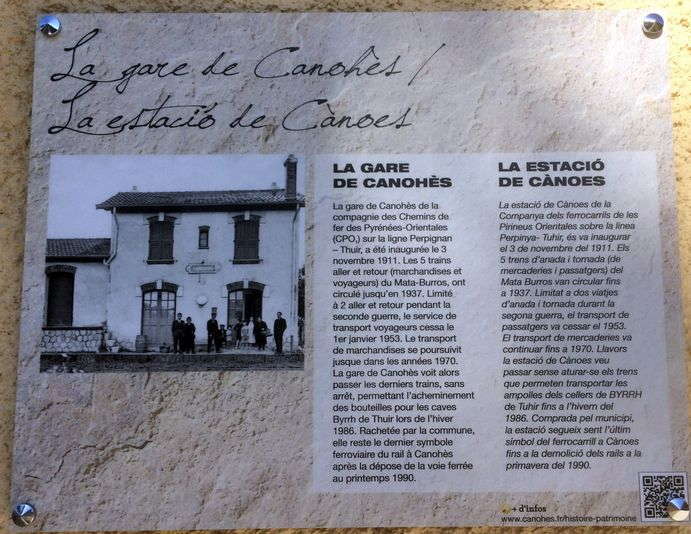 La gare de Canohès /
La estació de Cànoes
LA GARE
DE CANOHÈS
La gare de Canohès de la
compagnie des Chemins de
fer des Pyrénées-Orientales
(CPO,) sur la ligne Perpignan
– Thuir, a été inaugurée le 3
novembre 1911. Les 5 trains
aller et retour (marchandises et
voyageurs) du Mata-Burros, ont
circulé jusqu'en 1937. Limité
à 2 aller et retour pendant la
seconde guerre, le service de
transport voyageurs cessa le
1er janvier 1953. Le transport
de marchandises se poursuivit
jusque dans les années 1970.
La gare de Canohès voit alors
passer les derniers trains, sans
arrêt, permettant l'acheminement
des bouteilles pour les caves
Byrrh de Thuir lors de l'hiver
1986. Rachetée par la commune,
elle reste le dernier symbole
ferroviaire du rail à Canohès
après la dépose de la voie ferrée
au printemps 1990.
LA ESTACIÓ
DE CÀNOES
La estació de Cànoes de la
Companya dels ferrocarrils de les
Pirineus Orientales sobre la linea
Perpinya- Tuhir, és va inaugurar
el 3 de novembre del 1911. Els
5 trens d'anada i tornada (de
mercaderies i passatgers) del
Mata Burros van circular fins
a 1937. Limitat a dos viatges
d'anada i tornada durant la
segona guerra, el transport de
passatgers va cessar el 1953.
El transport de mercaderies va
continuar fins a 1970. Llavors
la estació de Cànoes veu
passar sense aturar-se els trens
que permeten transportar les
ampolles dels cellers de BYRRH
de Tuhir fins a l'hivern del
1986. Comprada pel municipi,
la estació segueix sent l'últim
símbol del ferrocarril a Cànoes
fins a la demolició dels rails a la
primavera del 1990.
+ d'infos
www.canohes.fr/histoire-patrimoine